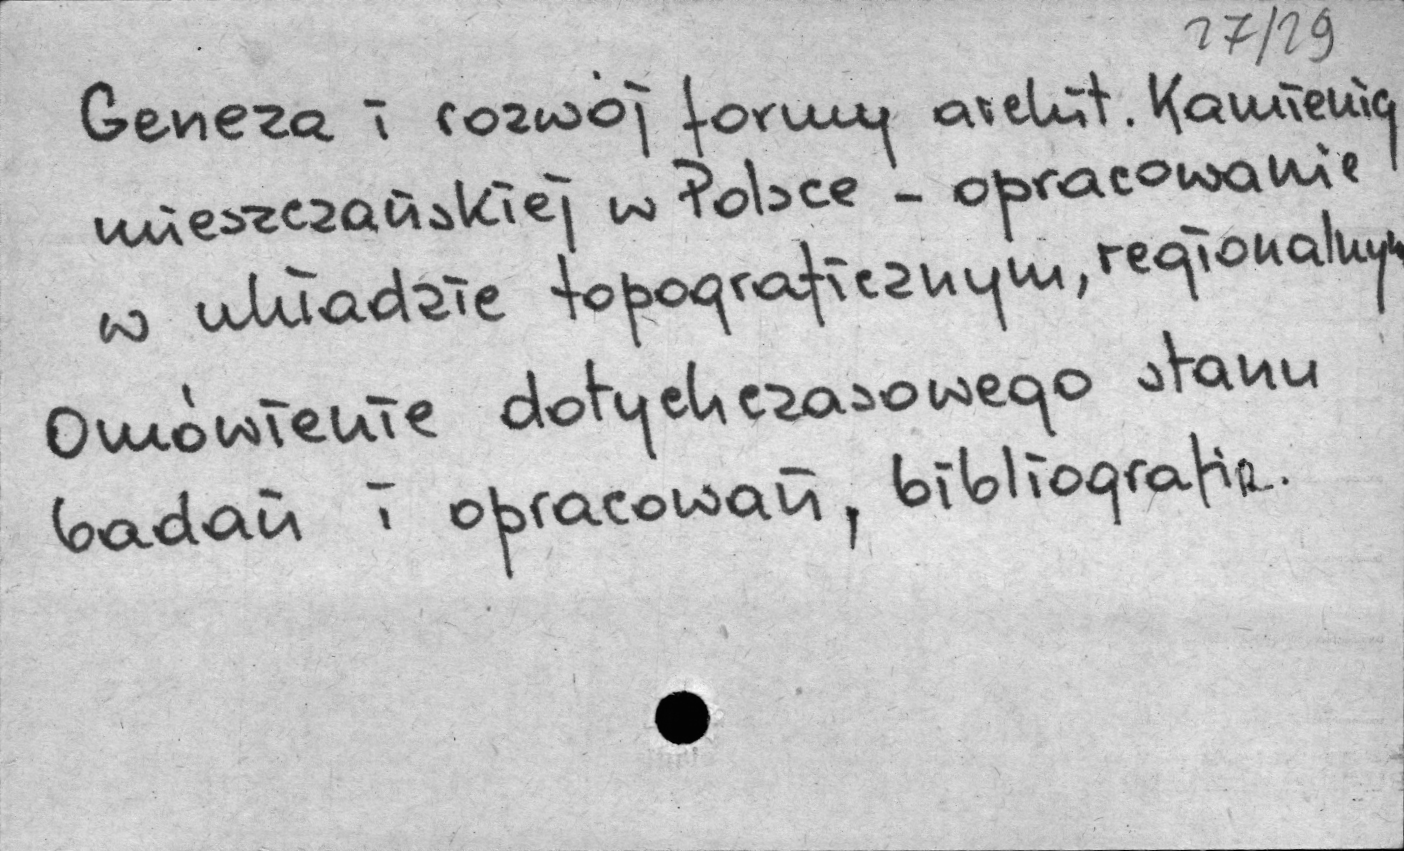 27/29
Geneza i rozwój formy archit. Kamienicy
mieszczańskiej w Polsce - opracowanie
w układzie topograficznym, regionalnym
Omówienie dotychczasowego stanu
badań i opracowań, bibliografia.